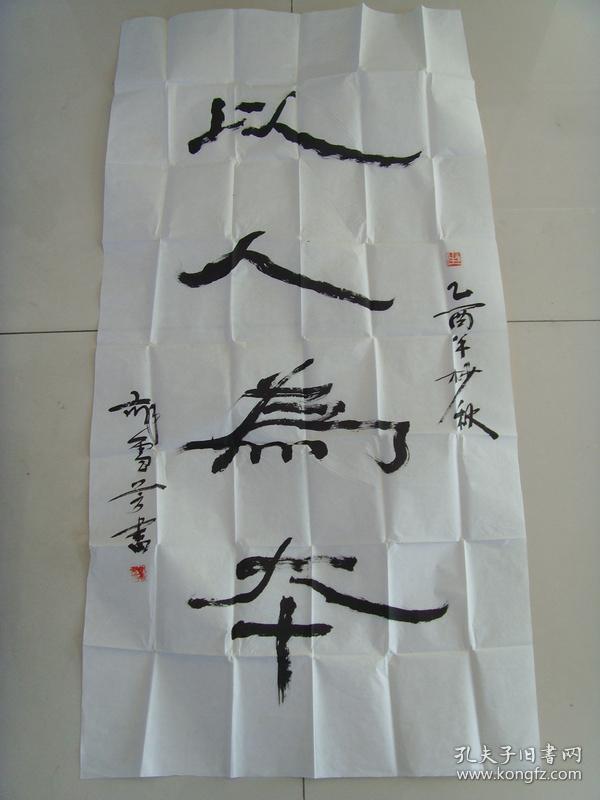 乙酉年杪秋
以人為夲
雪書
孔夫子旧書网
www.kongfz.com